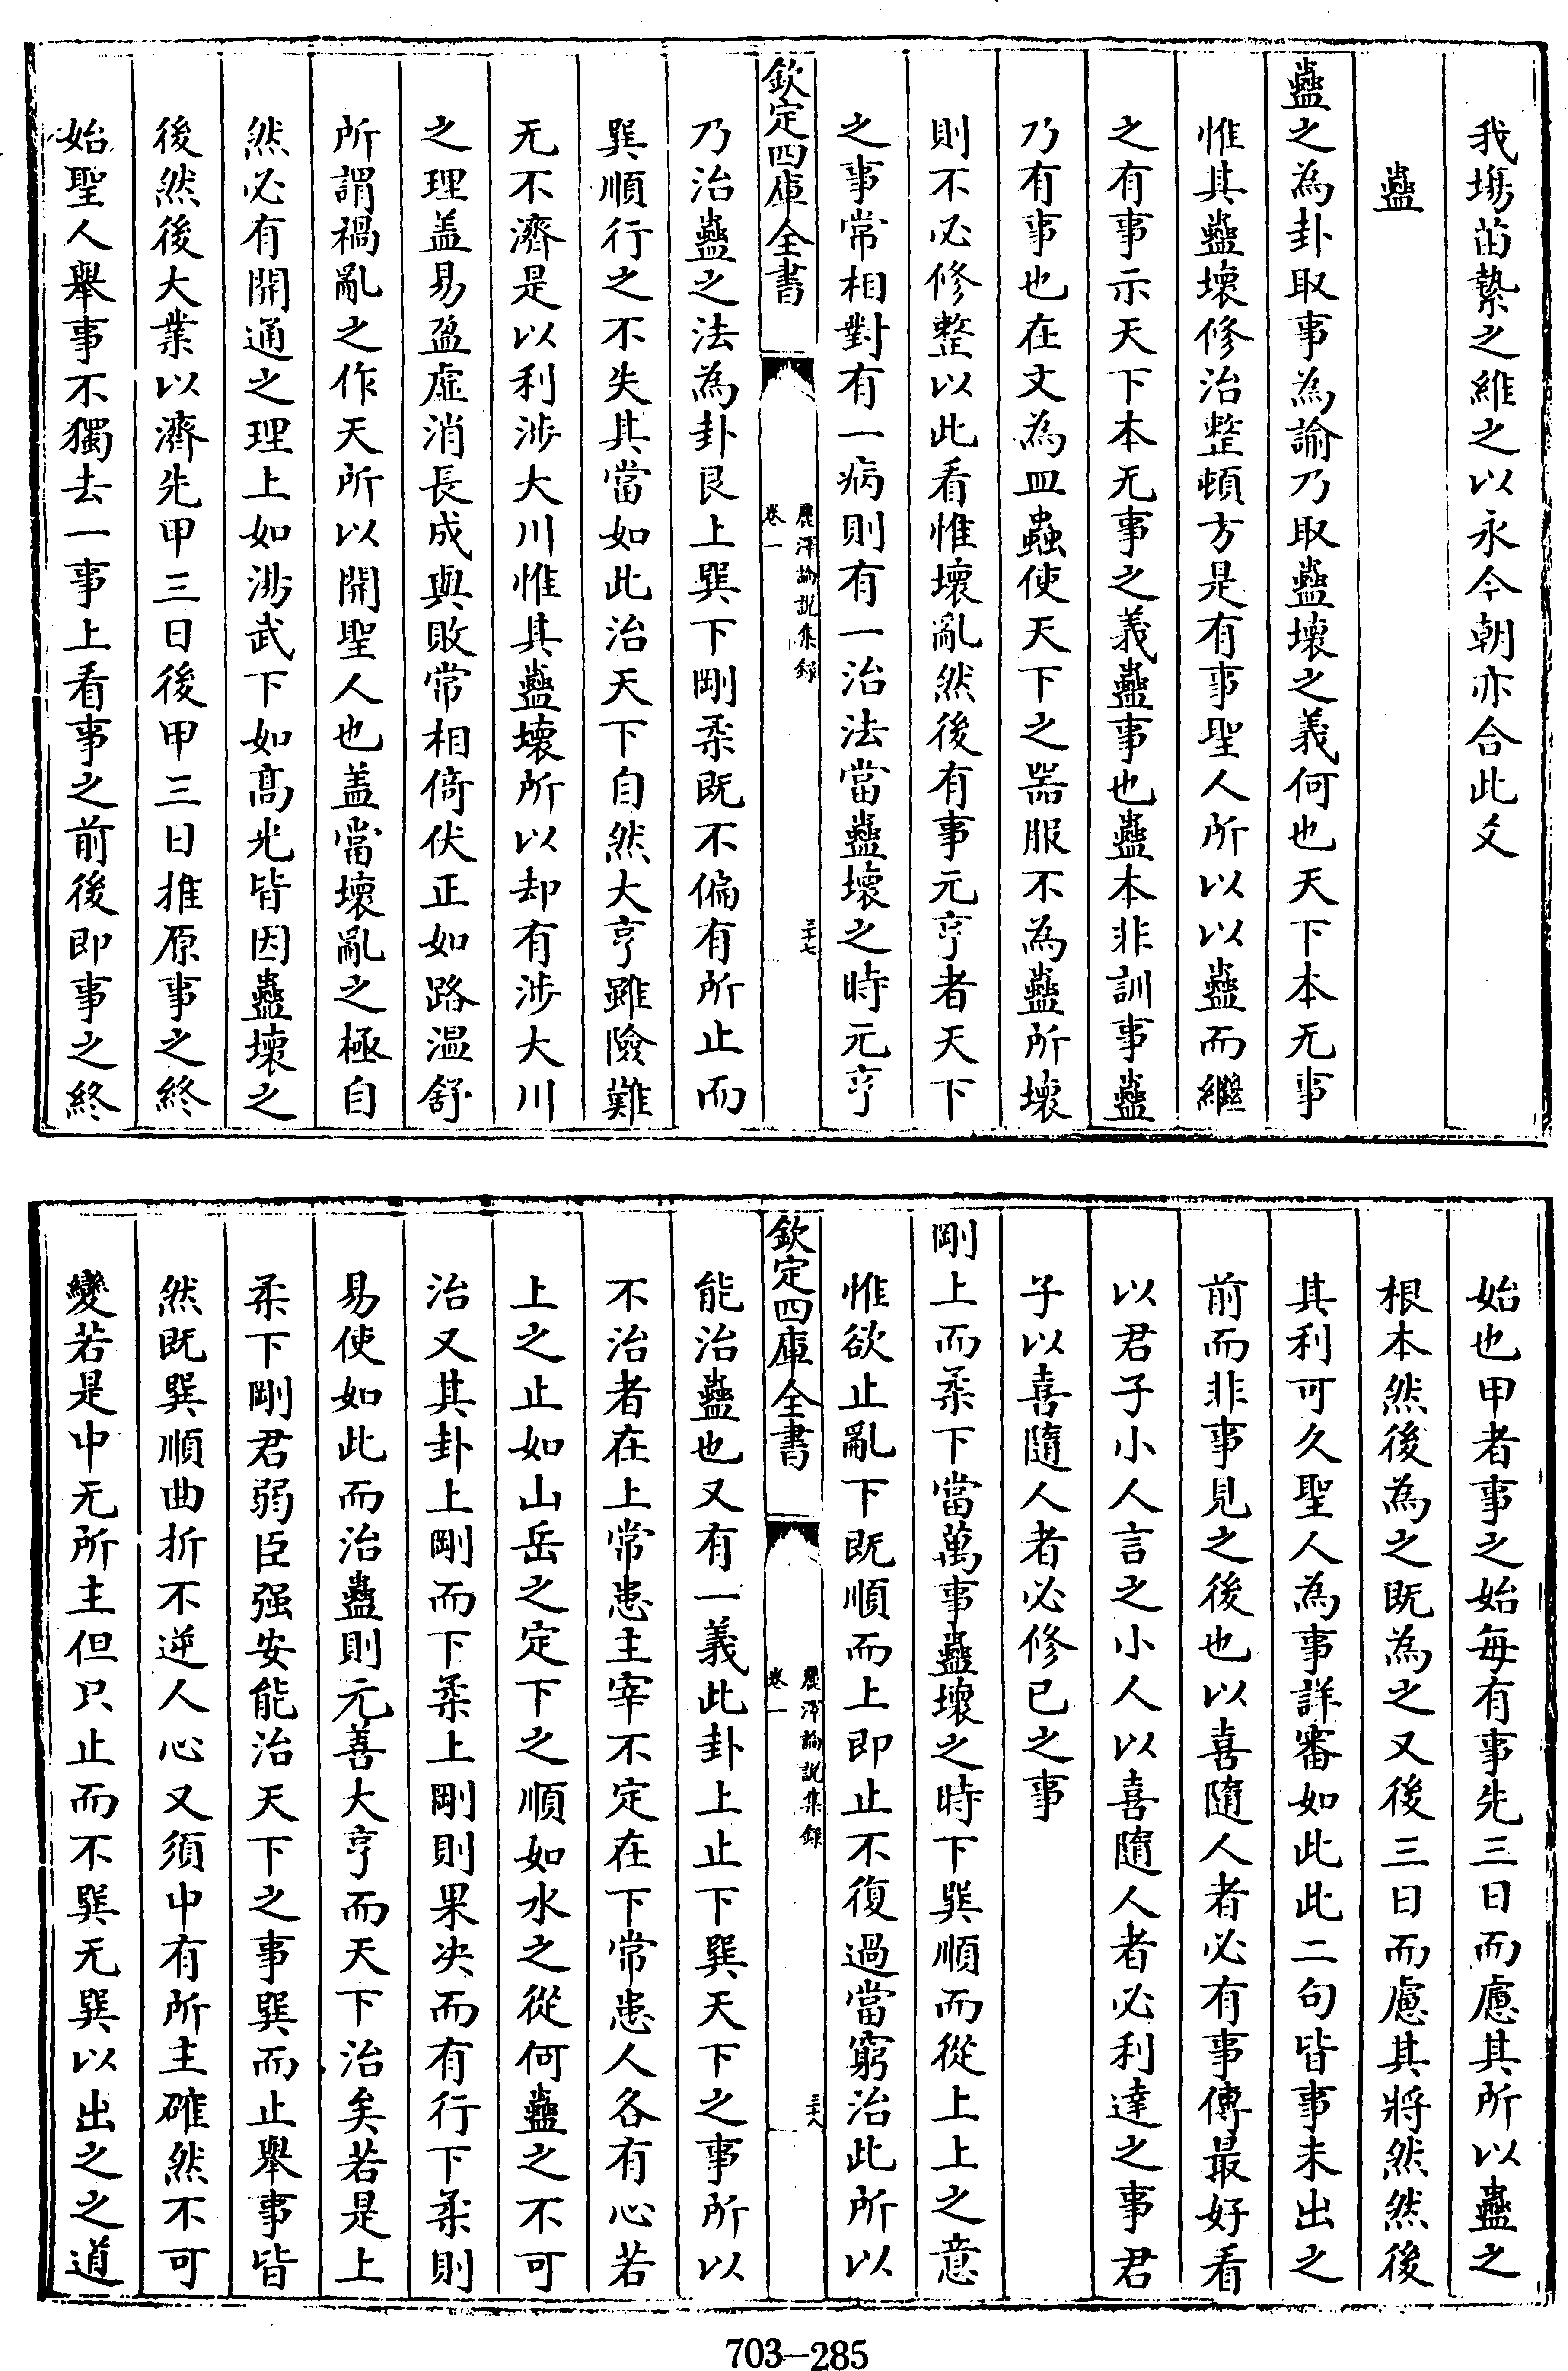 我塲苗縶之維之以永今朝亦合此爻
蠱
蠱之為卦取事為諭乃取蠱壞之義何也天下本无事
惟其蠱壞修治整頓方是有事聖人所以以蠱而繼
之有事示天下本无事之義蠱事也蠱本非訓事蠱
乃有事也在文為皿蟲使天下之器服不為蠱所壞
則不必修整以此看惟壞亂然後有事元亨者天下
之事常相對有一病則有一治法當蠱壞之時元亨
欽定四庫全書
麗澤論說集録
卷一
三十七
乃治蠱之法為卦艮上巽下剛柔既不偏有所止而
巽順行之不失其當如此治天下自然大亨雖險難
无不濟是以利涉大川惟其蠱壞所以却有涉大川
之理盖易盈虛消長成與敗常相倚伏正如路温舒
所謂禍亂之作天所以開聖人也盖當壞亂之極自
然必有開通之理上如湯武下如髙光皆因蠱壞之
後然後大業以濟先甲三日後甲三日推原事之終
始聖人舉事不獨去一事上看事之前後即事之終
始也甲者事之始每有事先三日而慮其所以蠱之
根本然後為之既為之又後三日而慮其將然然後
其利可久聖人為事詳審如此此二句皆事未出之
前而非事見之後也以喜隨人者必有事傳最好看
以君子小人言之小人以喜隨人者必利達之事君
子以喜隨人者必修已之事
剛上而柔下當萬事蠱壞之時下巽順而從上上之意
惟欲止亂下既順而上即止不復過當窮治此所以
欽定四庫全書
麗澤論說集録
卷一
三十八
能治蠱也又有一義此卦上止下巽天下之事所以
不治者在上常患主宰不定在下常患人各有心若
上之止如山岳之定下之順如水之從何蠱之不可
治又其卦上剛而下柔上剛則果决而有行下柔則
易使如此而治蠱則元善大亨而天下治矣若是上
柔下剛君弱臣强安能治天下之事巽而止舉事皆
然既巽順曲折不逆人心又須中有所主確然不可
變若是中无所主但只止而不巽无巽以出之之道
703—285